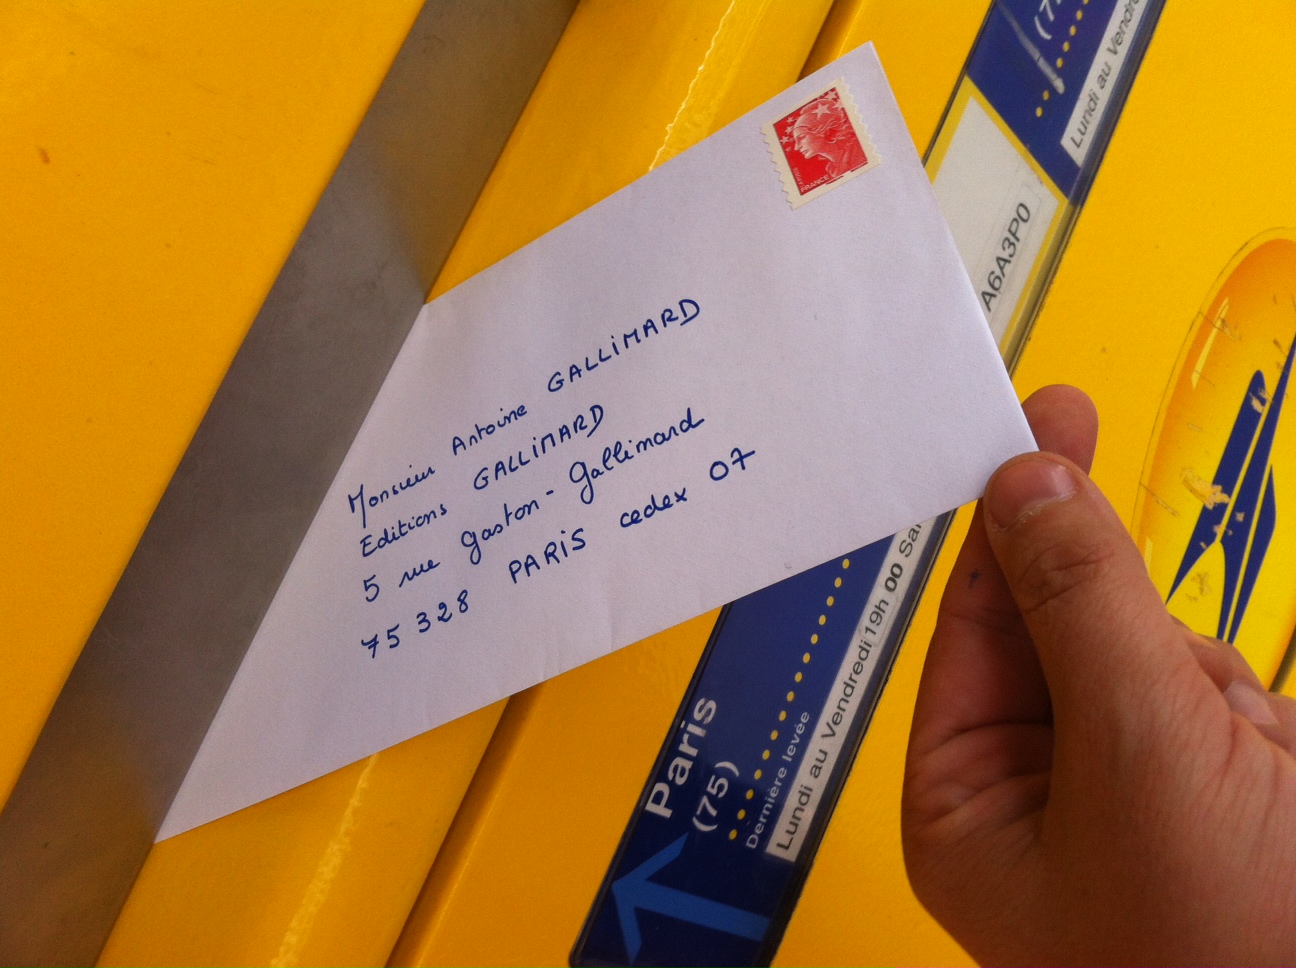 Monsieur Antoine GALLIMARD
Editions GALLIMARD
5 rue Gaston-Gallimard
75328 PARIS cedex 07
FRANCE
A6A3P0
Lundi au Vendre
Paris
(75)
Dernière levée
Lundi au Vendredi 19h 00 Sa